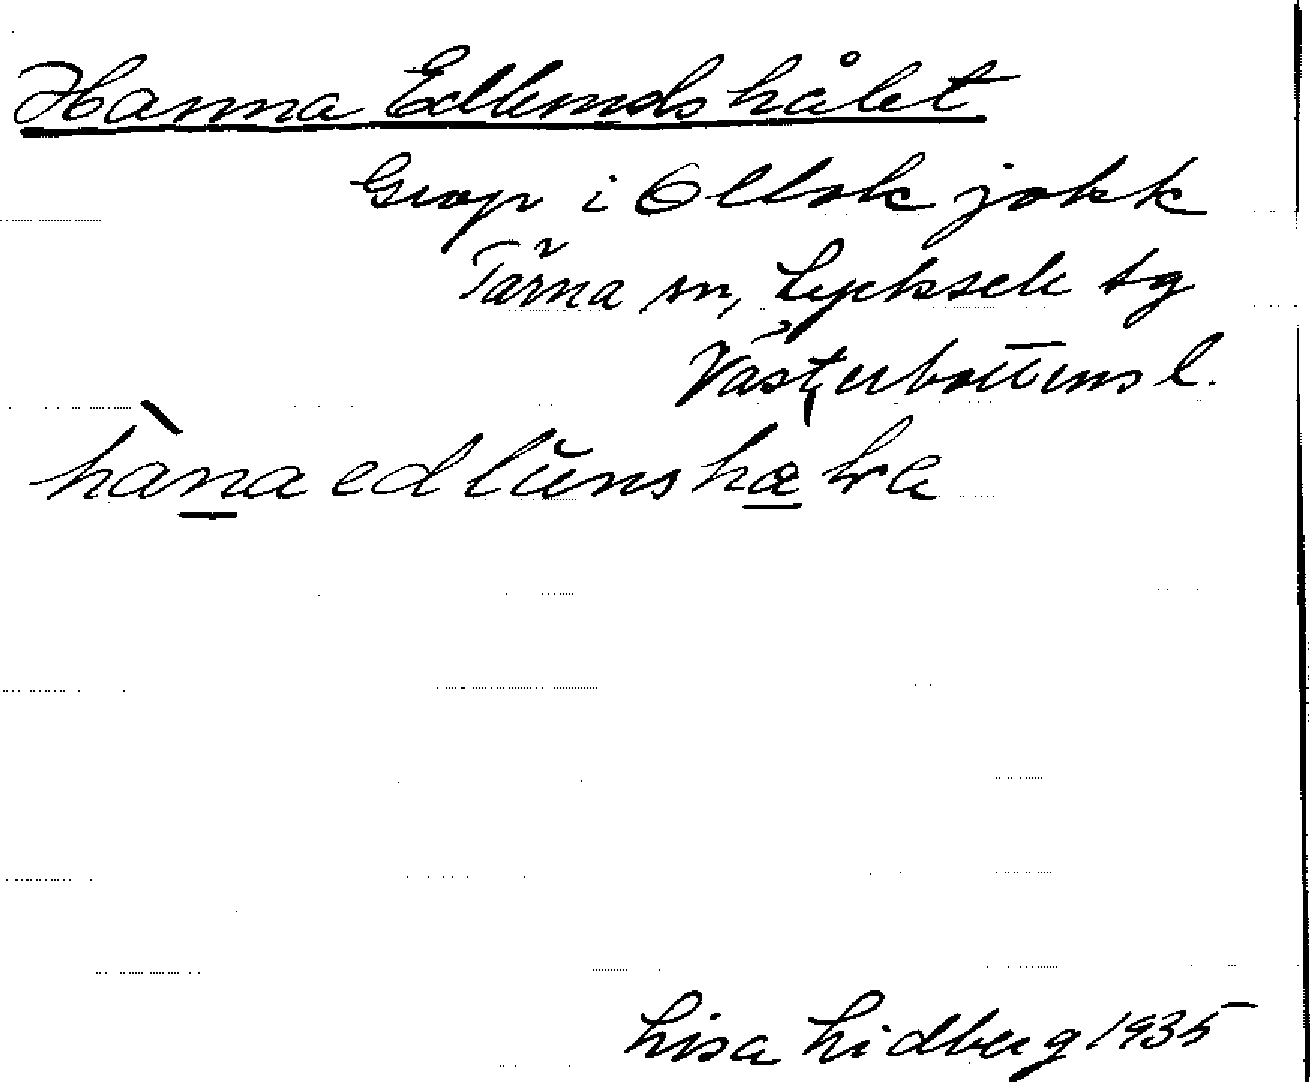 Hanna Edlundshålet
Grop i Ollokjokk
Tärna sn, Lycksele tg
Västerbottens l.
Lisa Lidberg 1935